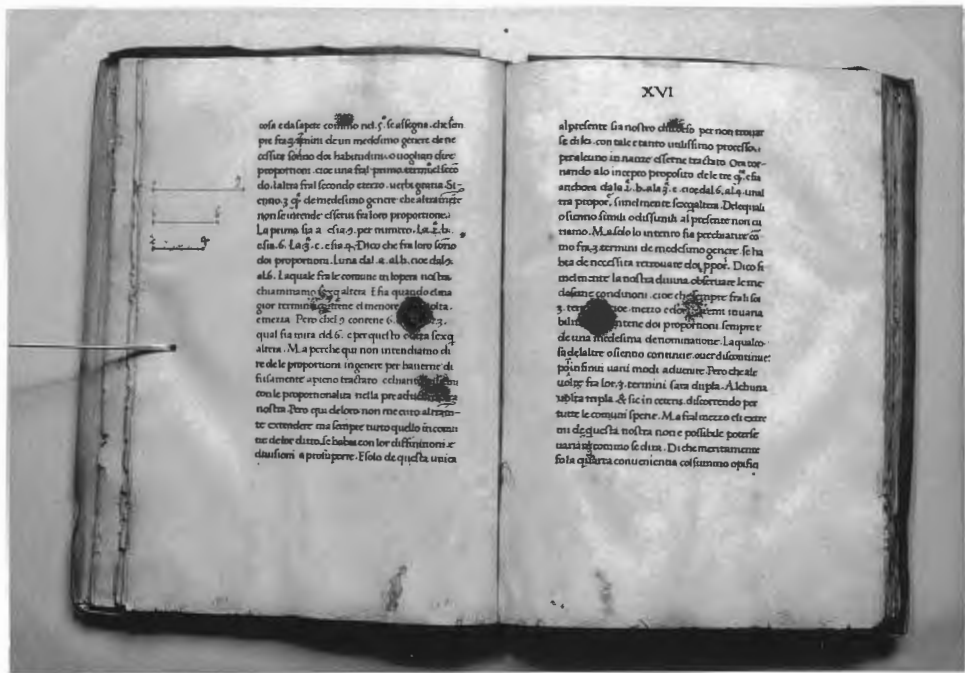 cosa e da sapere commo nel .5°. se assegna. che sem
pre fra .3. termini de un medesimo genere de ne
cessita sonno doi habitudini. o uoglian dire
proportioni. cioe una fral primo termine el seco
do. laltra fral secondo e terzo. uerbi gratia. Si-
enno .3. q̃ª de medesimo genere che altramẽte
non se intende esserui fra loro proportione.
La prima sia .a. e sia .9. per numero. La .2ª. b.
e sia .6. La .3ª. c. e sia .4. Dico che fra loro sono
doi proportioni. Luna dal .a. al .b. cioe dal .9.
al .6. La quale fra le comune in lopera nostra
chiammamo sexq altera. E sia quando el ma
gior termine contene el menore
e mezza. Pero chel .9. contene 6.
qual sia mita del .6. e per questo ditta sexq
altera. Ma perche qui non intendiamo di
re de le proportioni in genere per hauerne di
fusamente apieno tractato
con le proportionalita nella
nostra. Pero qui de loro non me curo altram-
te extendere ma sempre tutto quello in comu
ne de lor ditto. se habia con lor diffinitioni e
diuisioni a prosuporre. E solo de questa unica
XVI
al presente sia nostro per non trouar
se chi lo. con tale e tanto utilissimo processo.
per alcuno in nanze esserne tractato. Ora tor-
nando alo incepto proposito de le tre q̃ª. e sia
anchora da la .2ª. b. ala .3ª. c. cioe dal .6. al .4. unal
tra propor͂. similmente sexqaltera. De le quali
o sienno simili o dissimili al presente non cu
riamo. Ma solo lo intento sia per chiarire cõ
mo fra .3. termini de medesimo genere se ha
bia de necessita retrouare doi ppor͂. Dico si
melmente la nostra diuina obseruare le me
desime conditioni. cioe che sempre fra li soi
3. mezzo e doi inuaria
bilmente contene doi proportioni sempre
de una medesima denominatione. La qual co-
sa de laltre o sienno continue. ouer discontinue:
po in finiti uarii modi aduenire. Pero che ale
uolte fra lor .3. termini sara dupla. Alchuna
uolta tripla. & sic in ceteris. discorrendo per
tutte le comuni specie. Ma fral mezzo eli extre
mi de questa nostra non e possibile poterse
uariare commo se dira. Di che meritamente
fo la quarta conuenientia col summo opifici
9
6
4